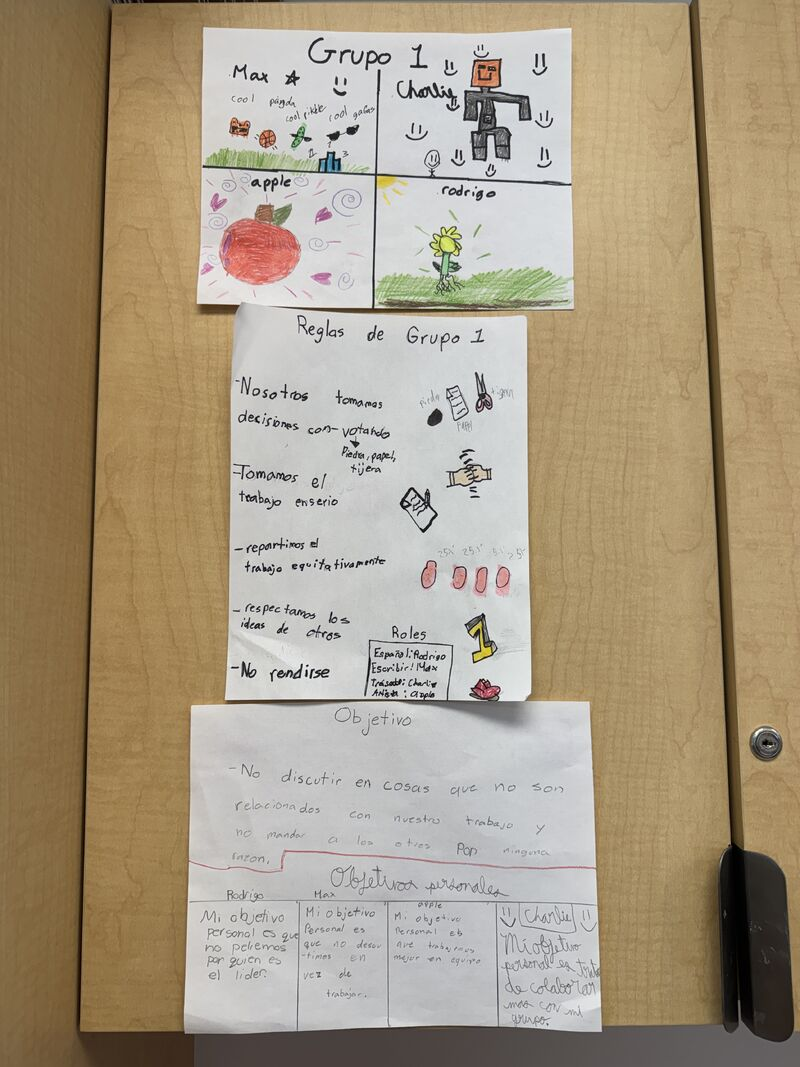 Grupo 1
Max
cool
cool
cool gafas
1
3
Charlie
apple
rodrigo
Reglas de Grupo 1
-Nosotros tomamos
decisiones con- votando
Piedra, papel,
tijera
piedra
papel
tigera
-Tomamos el
trabajo enserio
- repartimos el
trabajo equitativamente
- respectamos los
ideas de otros
-No rendirse
1
Roles
Español: Rodrigo
Escribir: Max
Charlie
apple
Objetivo
-No discutir en cosas que no son
relacionados con nuestro trabajo y
no mandar a los otros Por ninguna
razon.
Objetivos personales
Rodrigo
Mi objetivo
personal es que
no peliemos
por quien es
el lider.
Max
Mi objetivo
Personal es
que no descu
-timos en
vez de
trabajar.
apple
Mi objetivo
Personal es
que trabajemos
mejor en equipo
Charlie
Mi objetivo
personal es
de colaborar
mas con mi
grupo.